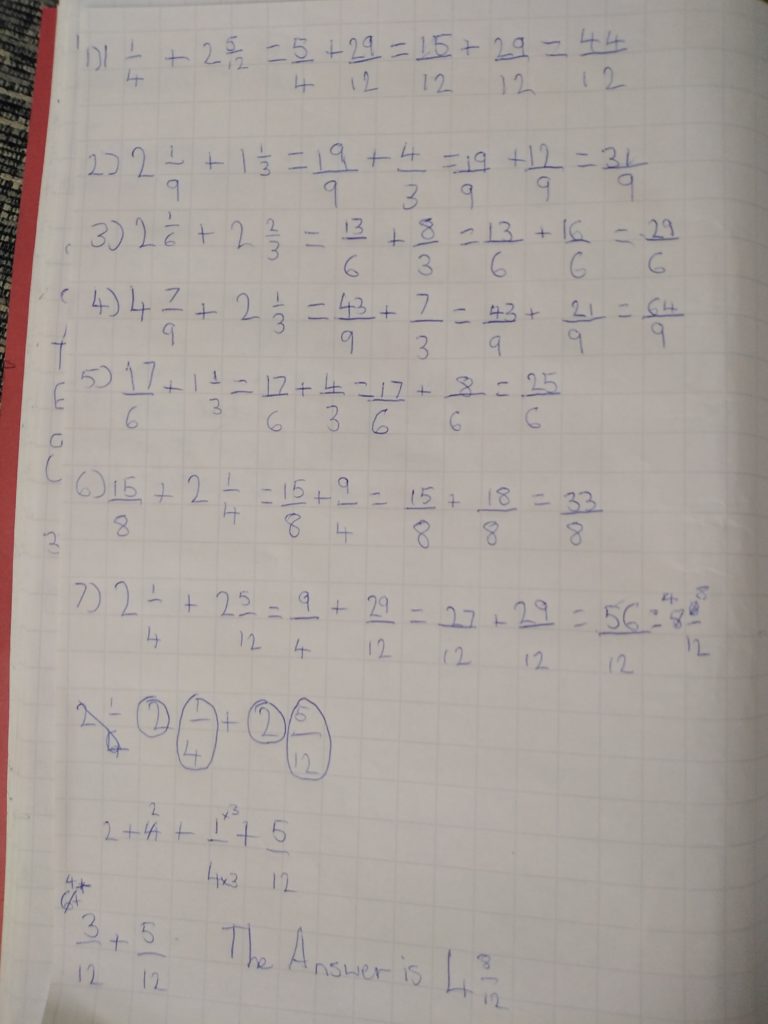 1) 1 1/4 + 2 5/12 = 5/4 + 29/12 = 15/12 + 29/12 = 44/12
2) 2 1/9 + 1 1/3 = 19/9 + 4/3 = 19/9 + 12/9 = 31/9
3) 2 1/6 + 2 2/3 = 13/6 + 8/3 = 13/6 + 16/6 = 29/6
4) 4 7/9 + 2 1/3 = 43/9 + 7/3 = 43/9 + 21/9 = 64/9
5) 17/6 + 1 1/3 = 17/6 + 4/3 = 17/6 + 8/6 = 25/6
6) 15/8 + 2 1/4 = 15/8 + 9/4 = 15/8 + 18/8 = 33/8
7) 2 1/4 + 2 5/12 = 9/4 + 29/12 = 27/12 + 29/12 = 56/12 = 4 8/12
2 1/4 + 2 5/12
2 + 2 + 1×3/4×3 + 5/12
4+ 3/12 + 5/12 The Answer is 4 8/12